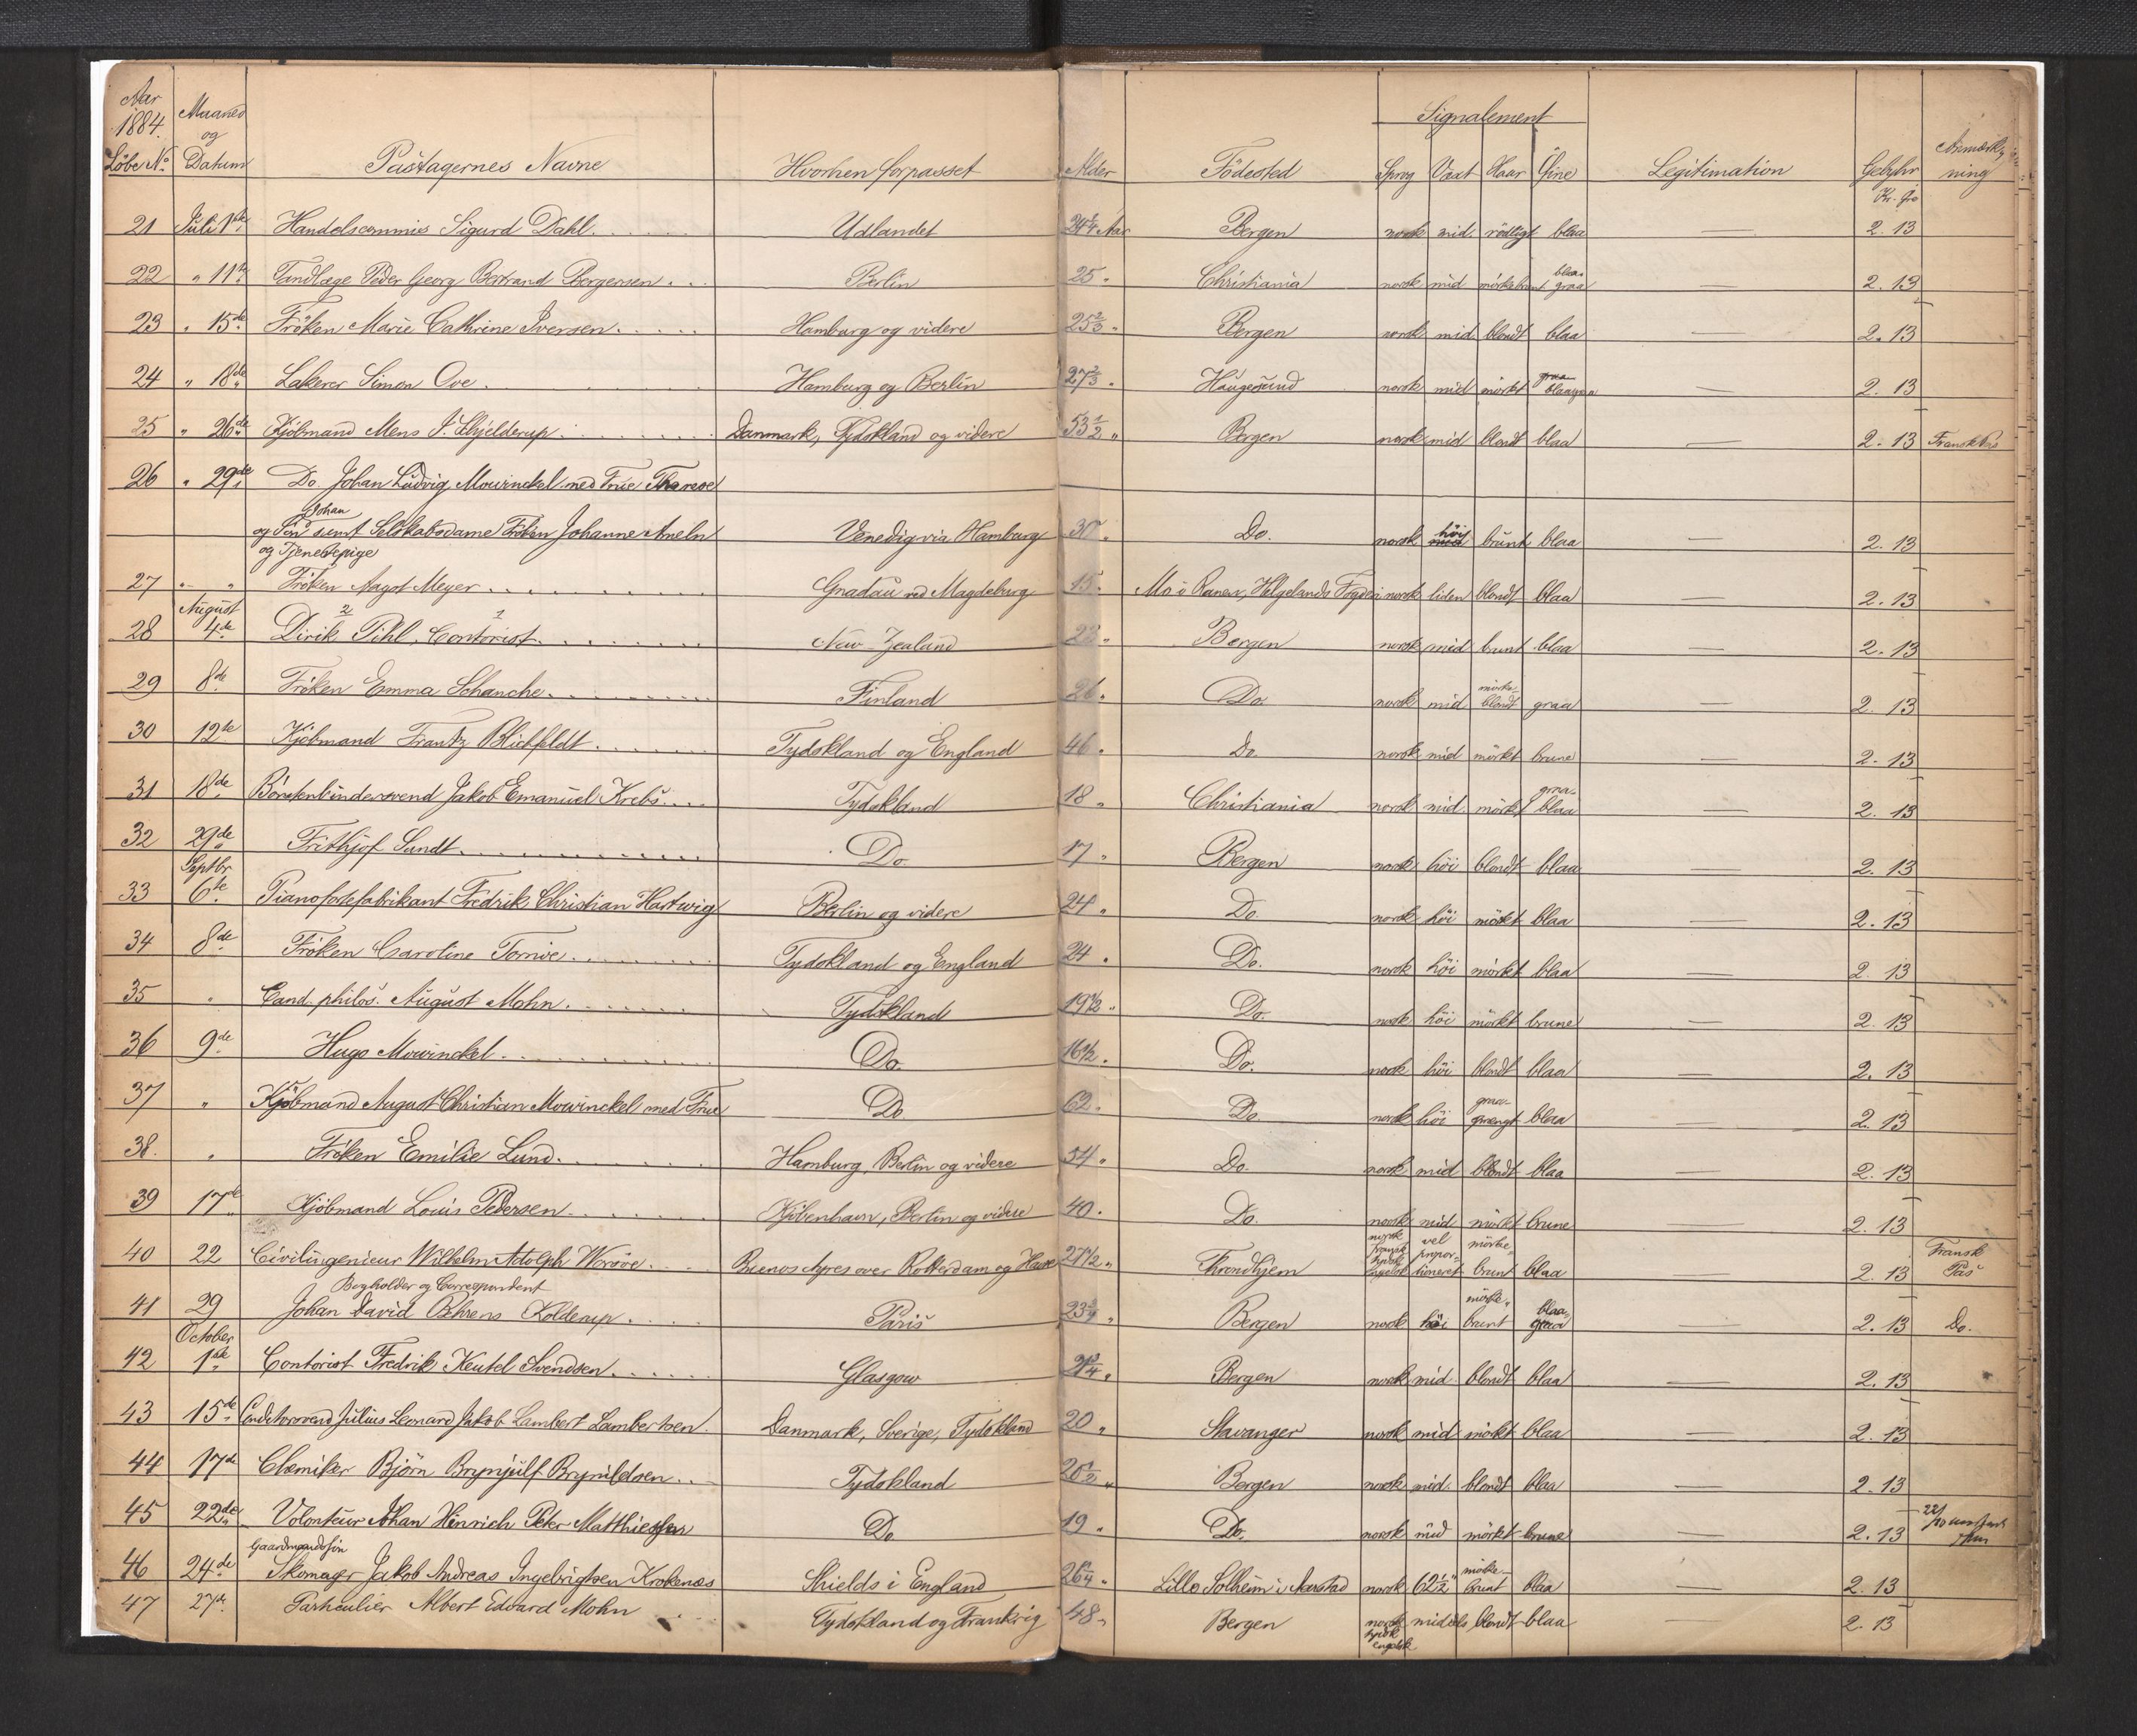 Aar 1884. Maaned og
Signalement
Løbe No. Datum Pastagernes Navne Hvorhen forpasset Alder Födested Sprog Vaxt Haar Öine Legitimation Gebyhr Anmærkning
Kr. Øre
21 Juli 1ste Handelscommis Sigurd Dahl. Udlandet 24 1/4 Aar Bergen norsk mid. rödligt blaa — 2. 13
22 " 11te Tandlæge Peder Georg Bertrand Bergersen. Berlin 25 " Christiania norsk mid mörkebrunt blaa-graa — 2. 13
23 " 15de Fröken Marie Cathrine Iversen. Hamburg og videre 25 2/3 " Bergen norsk mid blondt blaa — 2. 13
24 " 18de Lakerer Simon Ove. Hamburg og Berlin 27 2/3 " Haugesund norsk mid mörkt blaagraa — 2. 13
25 " 26de Kjöbmand Mens J. Schjelderup. Danmark, Tydskland og videre 53 1/2 " Bergen norsk mid blondt blaa — 2. 13 Fransk Pas
26 " 29de Do. Johan Ludvig Mowinckel med Frue Therese
og Sön Johan samt Selskabsdame Fröken Johanne Ameln Venedig via Hamburg 30 " Do. norsk höi brunt blaa — 2. 13
og Tjenestepige
27 " " Fröken Aagot Meyer. Gnadau ved Magdeburg 15 " Mo i Ranen, Helgelands Fogderi norsk liden blondt blaa — 2. 13
August
28 4de Dirik Pihl, Contorist. New-Zealand 23 " Bergen norsk mid brunt blaa — 2. 13
29 8de Fröken Emma Schanche. Finland 26 " Do. norsk mid mörkeblond graa — 2. 13
30 12te Kjöbmand Frantz Blichfeldt. Tydskland og England 46 " Do. norsk mid mörkt brune — 2. 13
31 18de Börstenbindersvend Jakob Emanuel Krebs. Tydskland 18 " Christiania norsk mid mörkt graa-blaa — 2. 13
32 29de Frithjof Sundt. Do 17 " Bergen norsk höi blondt blaa — 2. 13
Septbr.
33 6te Pianofortefabrikant Fredrik Christian Hartwig Berlin og videre 24 " Do. norsk höi mörkt blaa — 2. 13
34 8de Fröken Caroline Tornöe. Tydskland og England 24 " Do. norsk höi mörkt blaa — 2. 13
35 " Cand. philos. August Mohn. Tydskland 19 1/2 " Do. norsk höi mörkt brune — 2. 13
36 9de Hugo Mowinckel. Do. 16 1/2 " Do. norsk höi blondt blaa — 2. 13
37 " Kjöbmand August Christian Mowinckel med Frue Do 62 " Do. norsk höi graasprængt blaa — 2. 13
38. " Fröken Emilie Lund. Hamburg, Berlin og videre 54 " Do. norsk mid blondt blaa — 2. 13
39 17de Kjöbmand Louis Pedersen. Kjöbenhavn, Berlin og videre 40 " Do. norsk mid mörkt brune — 2. 13
40 22 Civilingenieur Wilhelm Adolph Worsöe. Buenos Ayres over Rotterdam og Havre 27 1/2 " Trondhjem norsk fransk tydsk engelsk vel proportioneret mörkebrunt blaa — 2. 13 Fransk Pas
Bogholder og Correspondent
41 29 Johan David Behrens Kolderup. Paris 23 3/4 " Bergen norsk höi mörkebrunt blaa — 2. 13 Do.
October
42 1ste Contorist Fredrik Keutel Svendsen. Glasgow 21 3/4 " Bergen norsk mid blondt blaa — 2. 13
43 15de Conditorsvend Julius Leonard Jakob Lambert Lambertsen. Danmark, Sverige, Tydskland 20 " Stavanger norsk mid mörkt blaa — 2. 13
44 17de Chemiker Björn Brynjulf Brynildsen. Tydskland 26 1/2 " Bergen norsk mid. blondt blaa — 2. 13
45 22de Volonteur Johan Hinrich Peter Matthiessen Do 19 " Do. norsk mid mörkt brune 2. 13 22/10
Gaardmandssön
46 24de Skomager Jakob Andreas Ingebrigtsen Krokenæs Shields i England 26 1/4 " Lille Solheim i Aarstad norsk 62 1/2" mörkebrunt blaa — 2. 13
47 27de Partikulier Albert Edvard Mohn Tydskland og Frankrig 48 " Bergen norsk tydsk engelsk middels blondt blaa — 2. 13